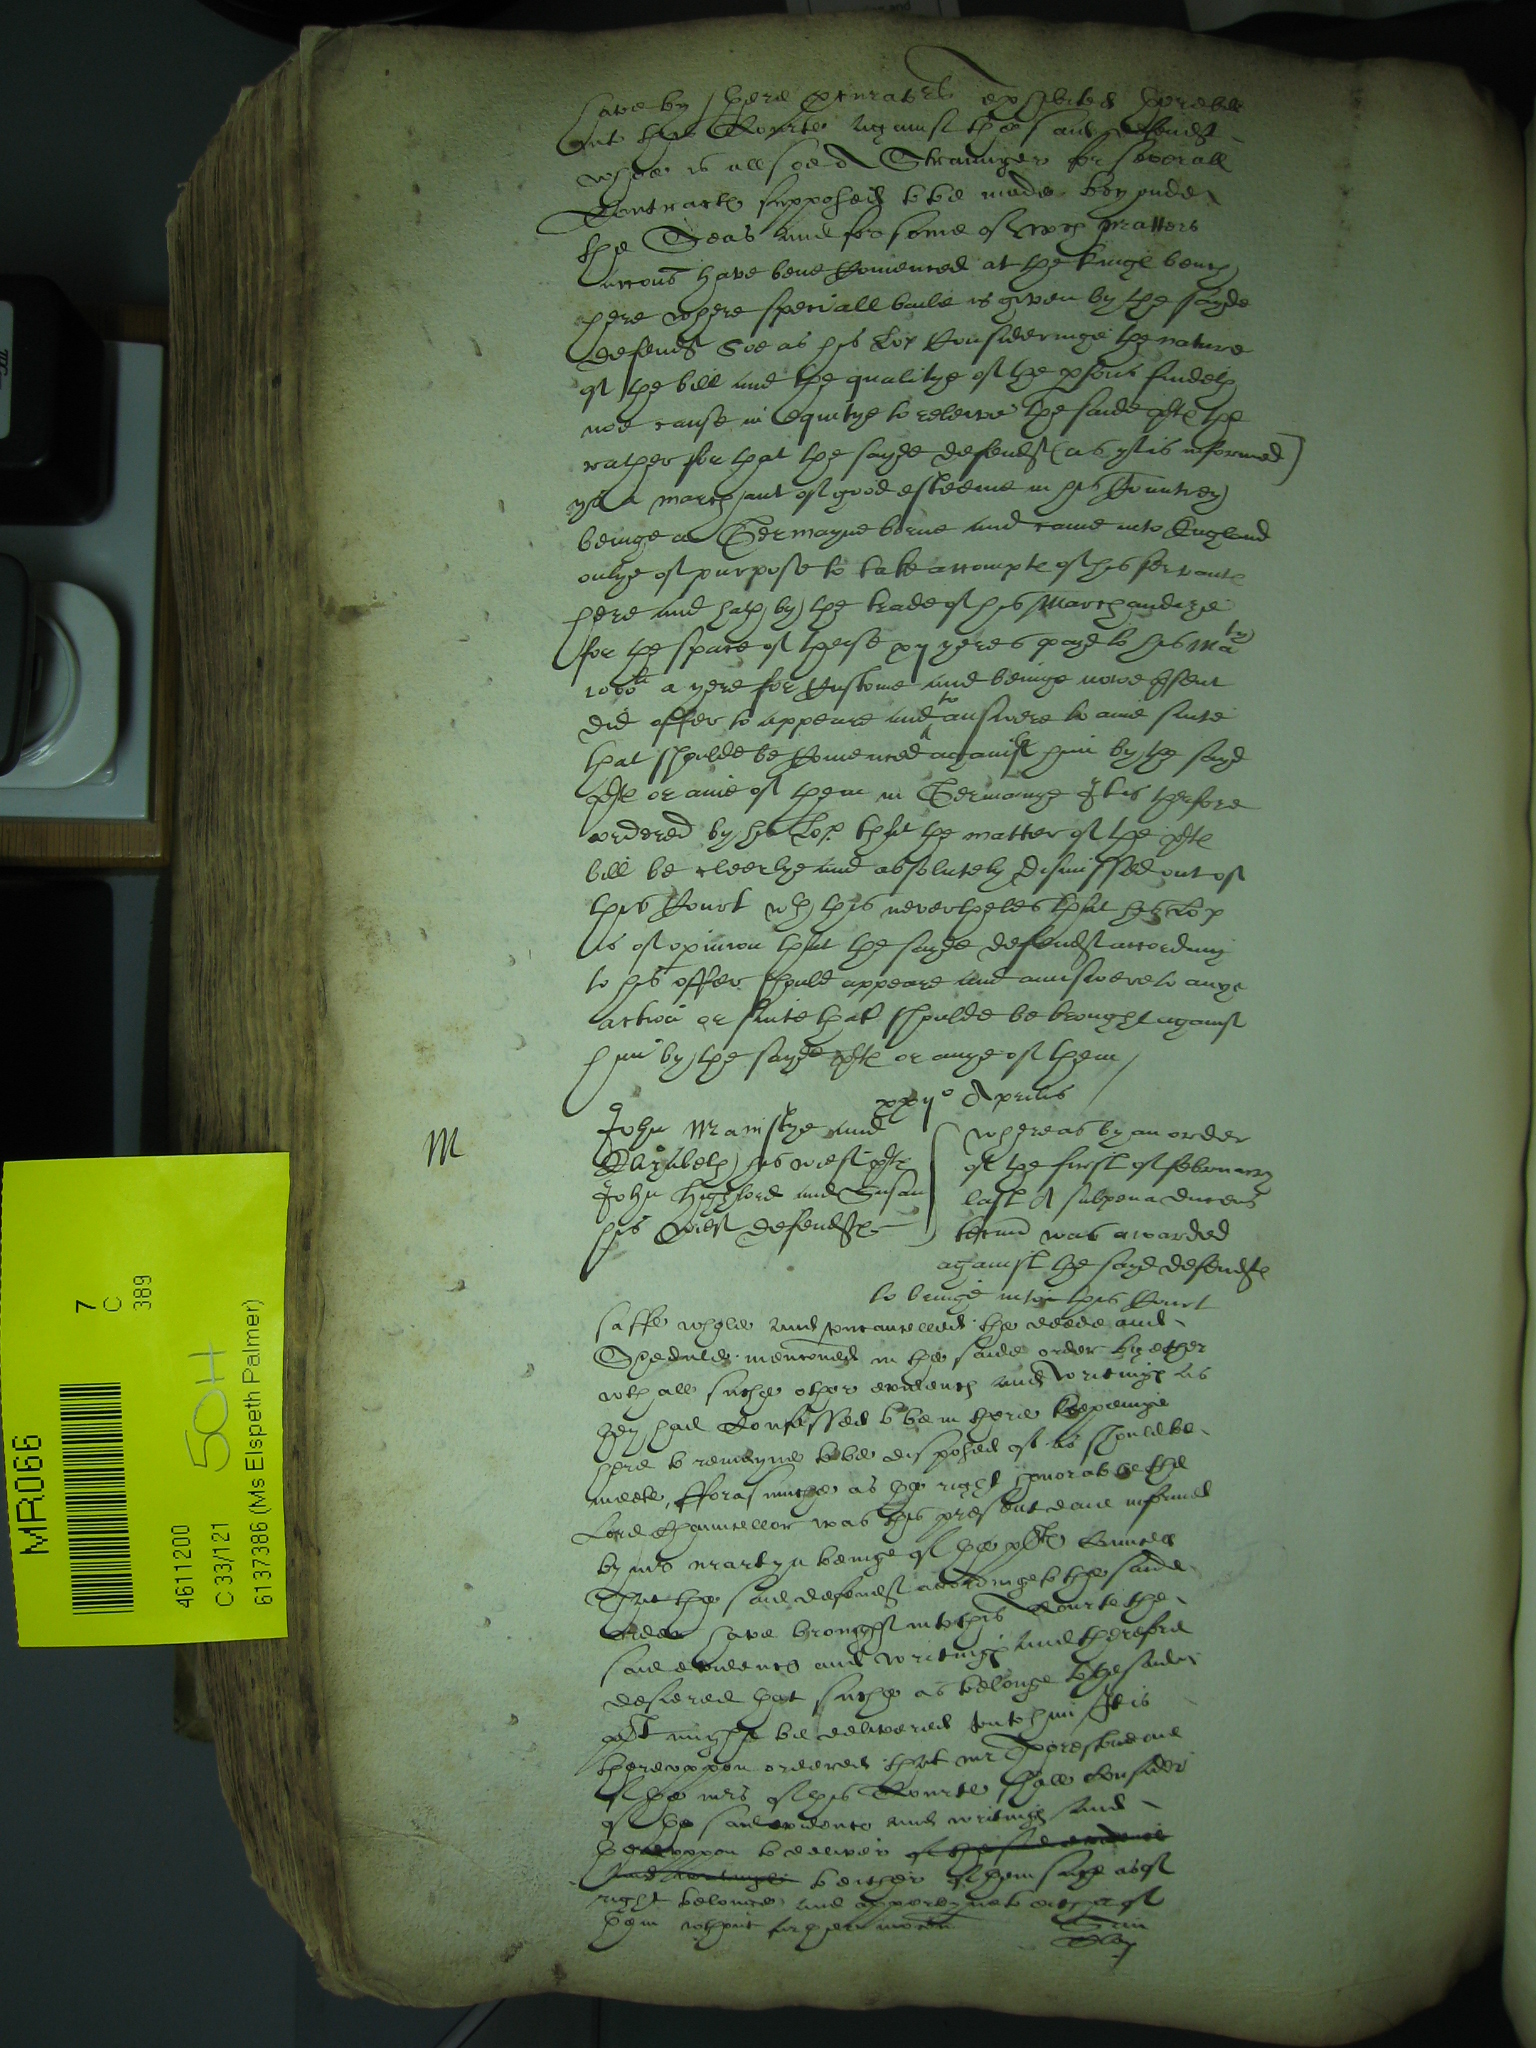 have by there procurators exhibited their bill
into this Courte against the said defendt
whoe is allsoe A Straunger for severall
Contracts supposed to be made beyonde
the Seas And for some of wch matters
accons have bene Comenced at the kings bench
here where speciall baile is given by the sayde
defendt Soe as his Lop Consideringe the nature
of the bill and the qualitye of the psons findeth
noe cause in equitye to releive the saide plts the
rather for that the sayde defendt (as yt is informed)
ys a marchaunt of good esteeme in his Countrey
beinge a Germayne borne and came into England
onlye of purpose to take accompte of his servants
here and hath by the trade of his Marchandize
for the space of these xij yeres payd to his Matie
1000li a yere for Custome and beinge nowe psent
did offer to appeare and to answere to anie suite
that shoulde be Comenced against him by the sayd
plts or anie of them in Germanye It is therfore
ordered by his Lop that the matter of the plts
bill be cleerlye and absolutely dismissed out of
this Court wth this neverthelesse that his Lop
is of opinion that the sayde defendt accordinge
to his offer should appeare and aunswere to anye
action or suite that shoulde be brought against
him by the sayde plts or anye of them
xxijo Aprilis
M
John Manistye and
Elizabeth his wief plts
John Highlord and Susan
his wief defendts
whereas by an order
of the first of february
last A subpena ducens
tecum was awarded
against the sayd defendts
to bringe into this Court
saffe whole and uncancelled the deede and
Scedule mencioned in the saide order together
wth all suche other evidences and writings as
they had Confessed to be in there keepeinge
here to remayne to be disposed of as should be
meete, fforasmuche as the right honorable the
Lord Chauncellor was this present daie informed
by mr martyn beinge of the plts Councell
That the said defendts accordinge to the saide
order have brought into this Courte the
said evidences and writings And therefore
desiered that suche as belonge to the saide
plt might be delivered unto him It is
thereuppon ordered that mr one
of the mrs of this Courte shall Consider
of the said evidences and writings and
thereuppon to deliver of the said evidences
and writings to either of them suche as of
right belonge and apperteyne to either of
them without further motion